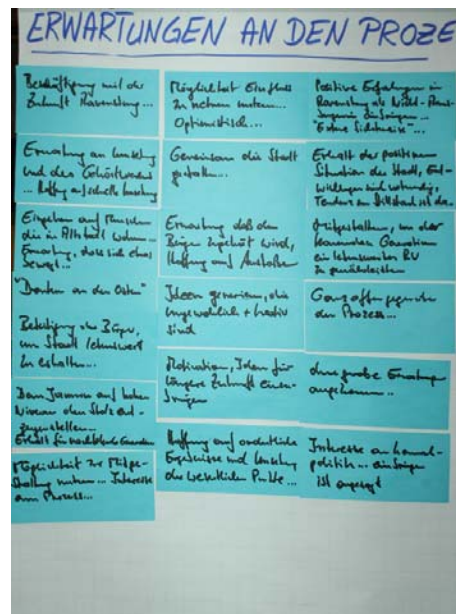 ERWARTUNGEN AN DEN PROZE
Beschäftigung mit der
Zukunft Ravensburg...
Erwartung an Umsetzung
und des Gehörtwerdens
... Hoffnung auf schnelle Umsetzung
Eingehen auf Menschen
die in Altstadt wohnen...
Erwartung, dass sich etwas
bewegt...
"Denken an den Osten"
Beteiligung der Bürger,
um Stadt lebenswert
zu erhalten...
Dem Jammern auf hohem
Niveau den Stolz ent-
gegenstellen...
Erhalt für nachfolgende
Möglichkeit zur Mitge-
staltung nutzen... Interesse
am Prozess...
Möglichkeit Einfluss
zu nehmen nutzen...
Optimistisch...
Gemeinsam die Stadt
gestalten...
Erwartung daß den
Bürgern zugehört wird,
Hoffnung auf Austausch
Ideen generieren, die
ungewöhnlich + kreativ
sind
Motivation, Ideen für
längere Zukunft einzu-
bringen
Hoffnung auf ordentliche
Ergebnisse und Umsetzung
der wesentlichen Punkte...
Positive Erfahrungen in
Ravensburg als
einbringen...
"Externe Sichtweise"...
Erhalt der positiven
Situation der Stadt, Ent-
wicklungen sind notwendig,
Tendenz zu Stillstand ist da...
Mitgestalten, um der
kommenden Generation
ein lebenswertes RV
zu gewährleisten
Ganz offen gegenüber
dem Prozess...
ohne große Erwartungen
angekommen...
Interesse an Kommunal-
politik... einbringen
ist angesagt